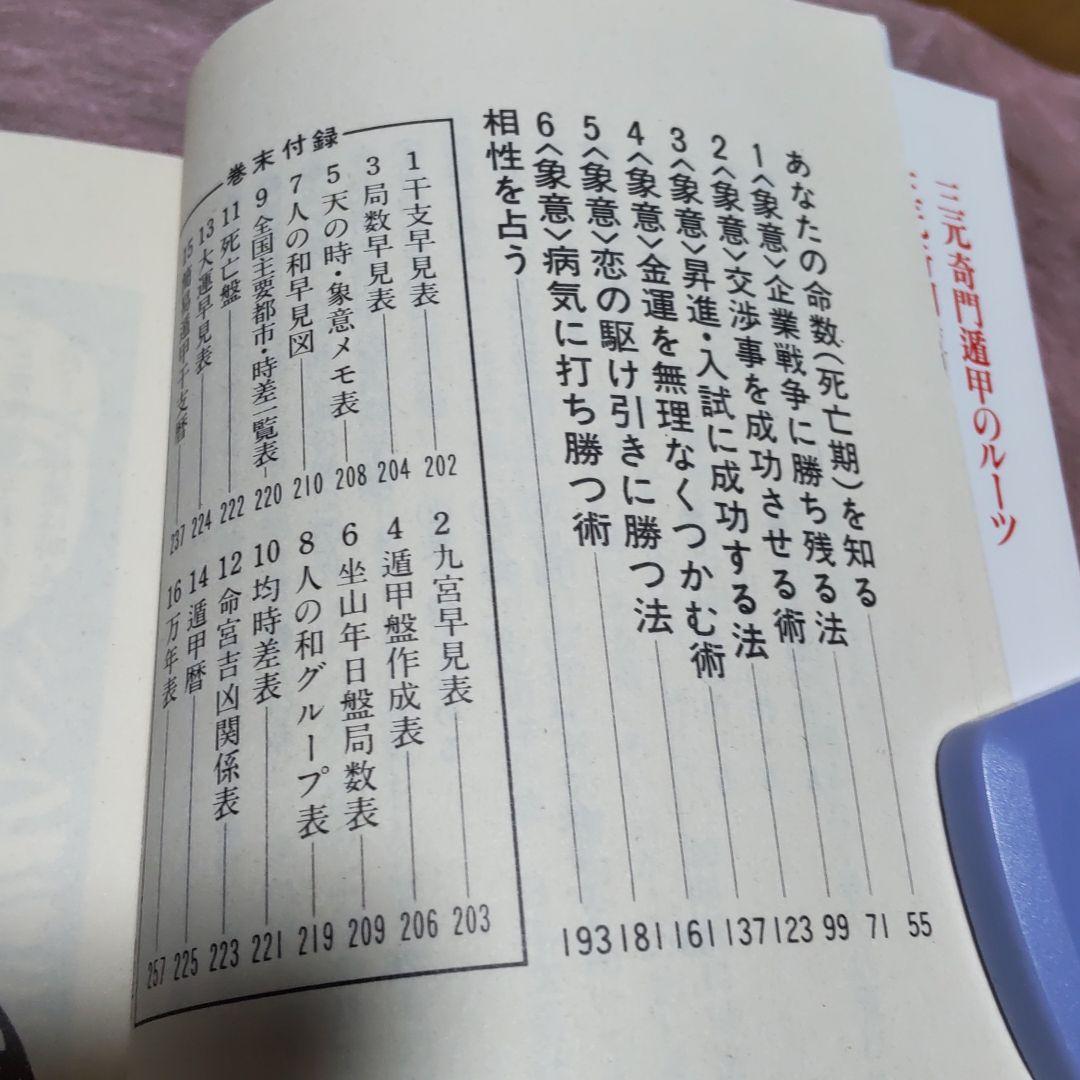 三元奇門遁甲のルーツ
あなたの命数(死亡期)を知る 55
1〈象意〉企業戦争に勝ち残る法 71
2〈象意〉交渉事を成功させる術 99
3〈象意〉昇進・入試に成功する法 123
4〈象意〉金運を無理なくつかむ術 137
5〈象意〉恋の駆け引きに勝つ法 161
6〈象意〉病気に打ち勝つ術 181
相性を占う 193
巻末付録
1 干支早見表 202
2 九宮早見表 203
3 局数早見表 204
4 遁甲盤作成表 206
5 天の時・象意メモ表 208
6 坐山年日盤局数表 209
7 人の和早見図 210
8 人の和グループ表 219
9 全国主要都市・時差一覧表 220
10 均時差表 221
11 死亡盤 222
12 命宮吉凶関係表 223
13 大運早見表 224
14 遁甲暦 225
15 遁甲干支暦 237
16 万年表 257